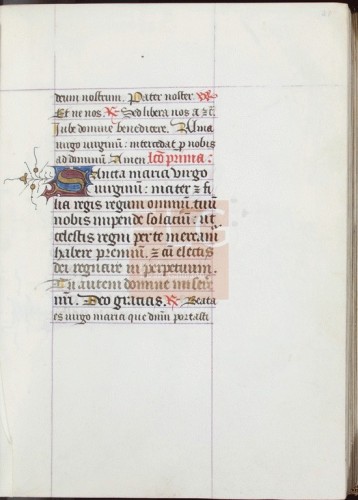 deum nostrum. Pater noster. ℣
Et ne nos. ℟ Sed libera nos a ⁊ c̄.
Iube domne benedicere. Alma
uirgo uirginū: intercedat ꝓ nobis
ad dominū. Amen. lcō prima:
Sancta maria virgo
uirginum: mater ⁊ fi
lia regis regum omniū: tuū
nobis impende solaciū: ut
celestis regni per te mereamʳ
habere premiū. ⁊ cū electis
dei regnare in perpetuum.
Tu autem domine misere
nr̄i. Deo gracias. ℟ Beata
es uirgo maria que dnm̄ portasti